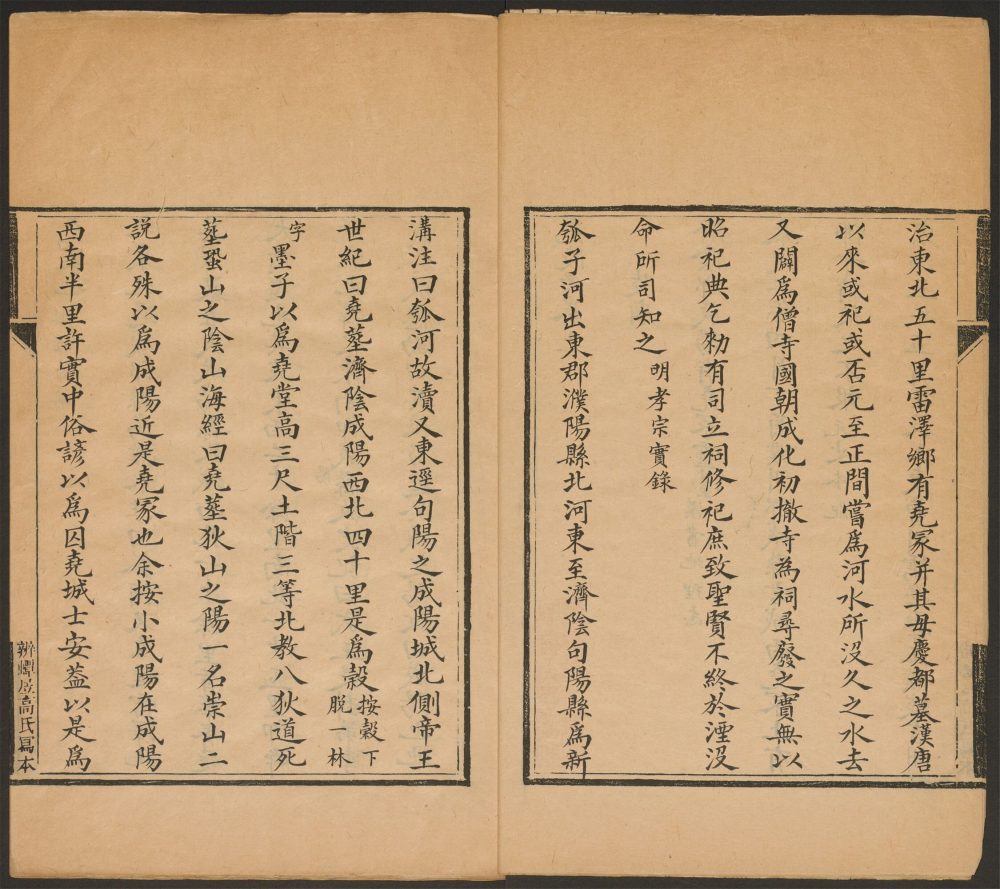 治東北五十里雷澤鄉有堯冢并其母慶都墓漢唐
以來或祀或否元至正間嘗爲河水所沒久之水去
又闢爲僧寺國朝成化初撤寺為祠尋廢之實無以
昭祀典乞勑有司立祠修祀庶致聖賢不終於湮沒
命所司知之明孝宗實錄
瓠子河出東郡濮陽縣北河東至濟陰句陽縣爲新
溝注曰瓠河故瀆又東逕句陽之成陽城北側帝王
世紀曰堯塟濟陰成陽西北四十里是爲穀按穀下脱一林
字墨子以爲堯堂高三尺土階三等北教八狄道死
塟蛩山之陰山海經曰堯塟狄山之陽一名崇山二
説各殊以爲成陽近是堯冢也余按小成陽在成陽
西南半里許實中俗諺以爲囚堯城士安葢以是爲
辨蟫居高氏寫本